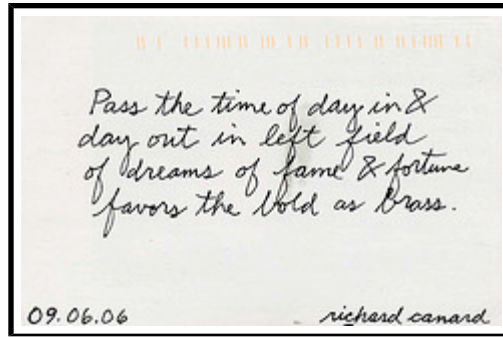 Pass the time of day in &
day out in left field
of dreams of fame & fortune
favors the bold as brass.
09.06.06
richard canard